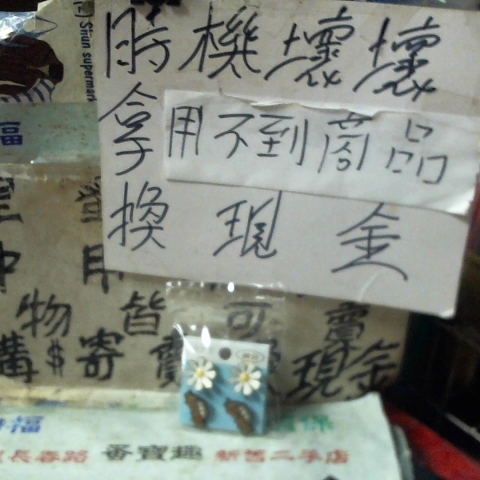 Sirun supermar
時機壞壞
拿用不到商品
換現金
福
中用
物皆可賣
購$寄賣現金
福
長春路 番寶趣 新舊二手店